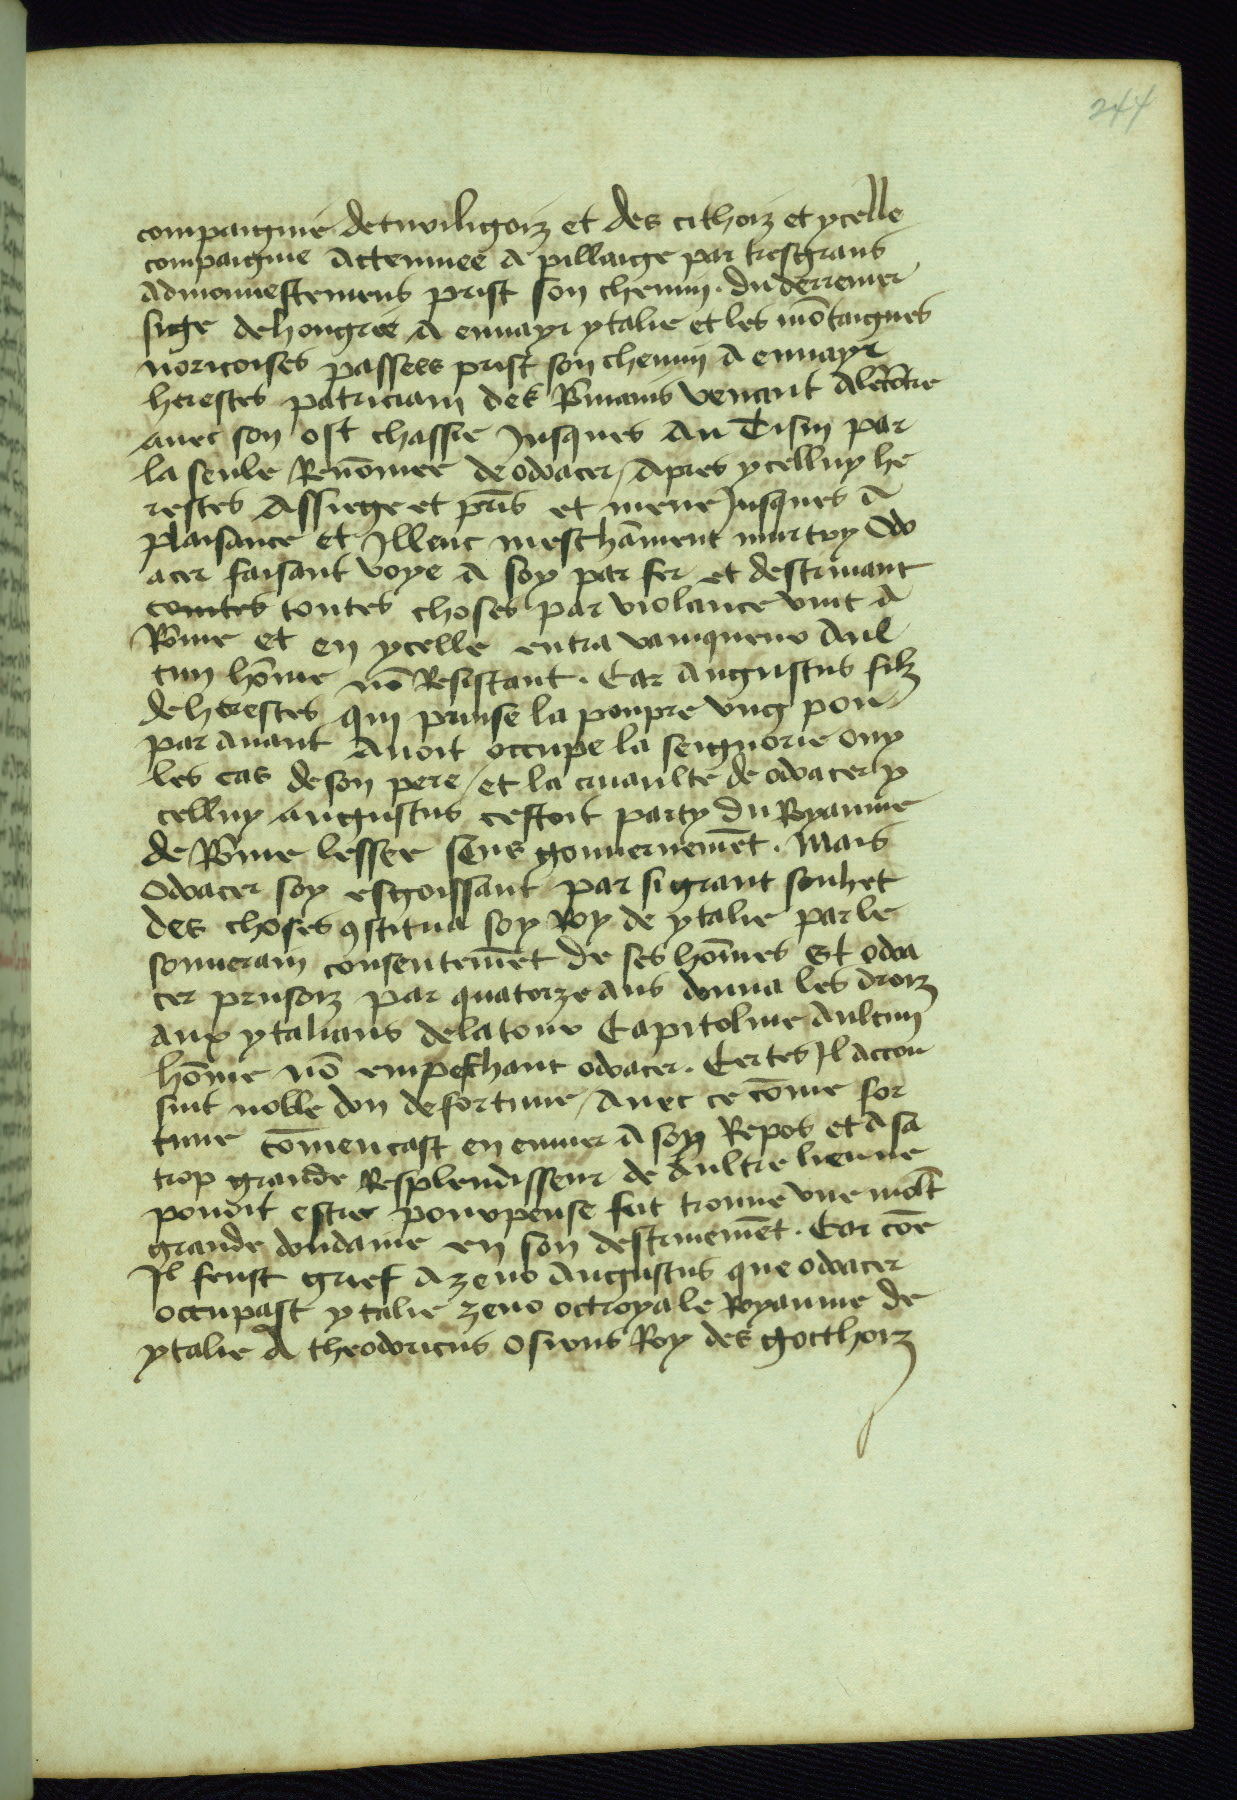 244
compaignie detuviligoiz et des cithoiz et ycelle
compaignie actennee a pillaige par tresgrans
admonnestemens prist son chemin. du derrenier
siege de hongrie a ennayr ytalie et les mōtaignes
noricoises passees prist son chemin a ennayr
herestes patriciam des Rōmains venant alēcōtre
auec son ost chassie Jusques au Tisin par
la seule Renōmee de odoacer / Apres ycelluy he
restes assiege et pris et mene Jusques a
plaisance et Illenc meschāment murtry Odo
acer faisant voye a soy par fer et destruiant
contes toutes choses par violance vint a
Rōme et en ycelle entra vainqueur Aul
cun hōme nō Resistant. Car Augustus filz
de herestes qui prinse la poupre vng pou
par auant auoit occupe la seignorie ouy
les cas de son pere / et la cruaulte de odoacer y
celluy augustus cestoit party du Royaume
de Rōme lessee sens gouuernemēt. Mais
Odoacer soy esgoissant par si grant souhet
des choses ꝯstitua soy Roy de ytalie par le
souuerain consentemēt de ses hōmes Et odoa
cer prusoiz par quatorze ans donna les droiz
aux ytalians de la tour Capitoline Aulcun
hōme nō empeschant odoacer. Certes Il accou
suit noble don de fortune / Auec ce cōme for
tune cōmencast en enuier a son Repos et a sa
trop grande Resplendisseur de aultre lieu ne
pouoit estre pourpense fut trouue vne molt
grande dondaine en son destruiemēt. Car cōe
Il feust grief a zeno Augustus que odoacer
occupast ytalie zeno octroya le Royaume de
ytalie A theodoricus Osirus Roy des gotthoiz